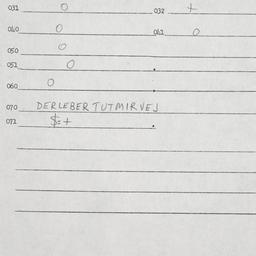 031 0 032 +
040 0 041 0
050 0
051 0
060 0
070 DERLEBERTUTMIRVEJ
071 $=+